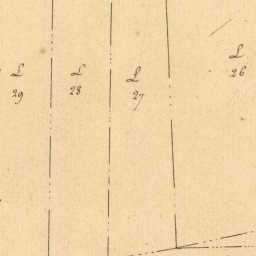 L
29
L
28
L
27
L
26